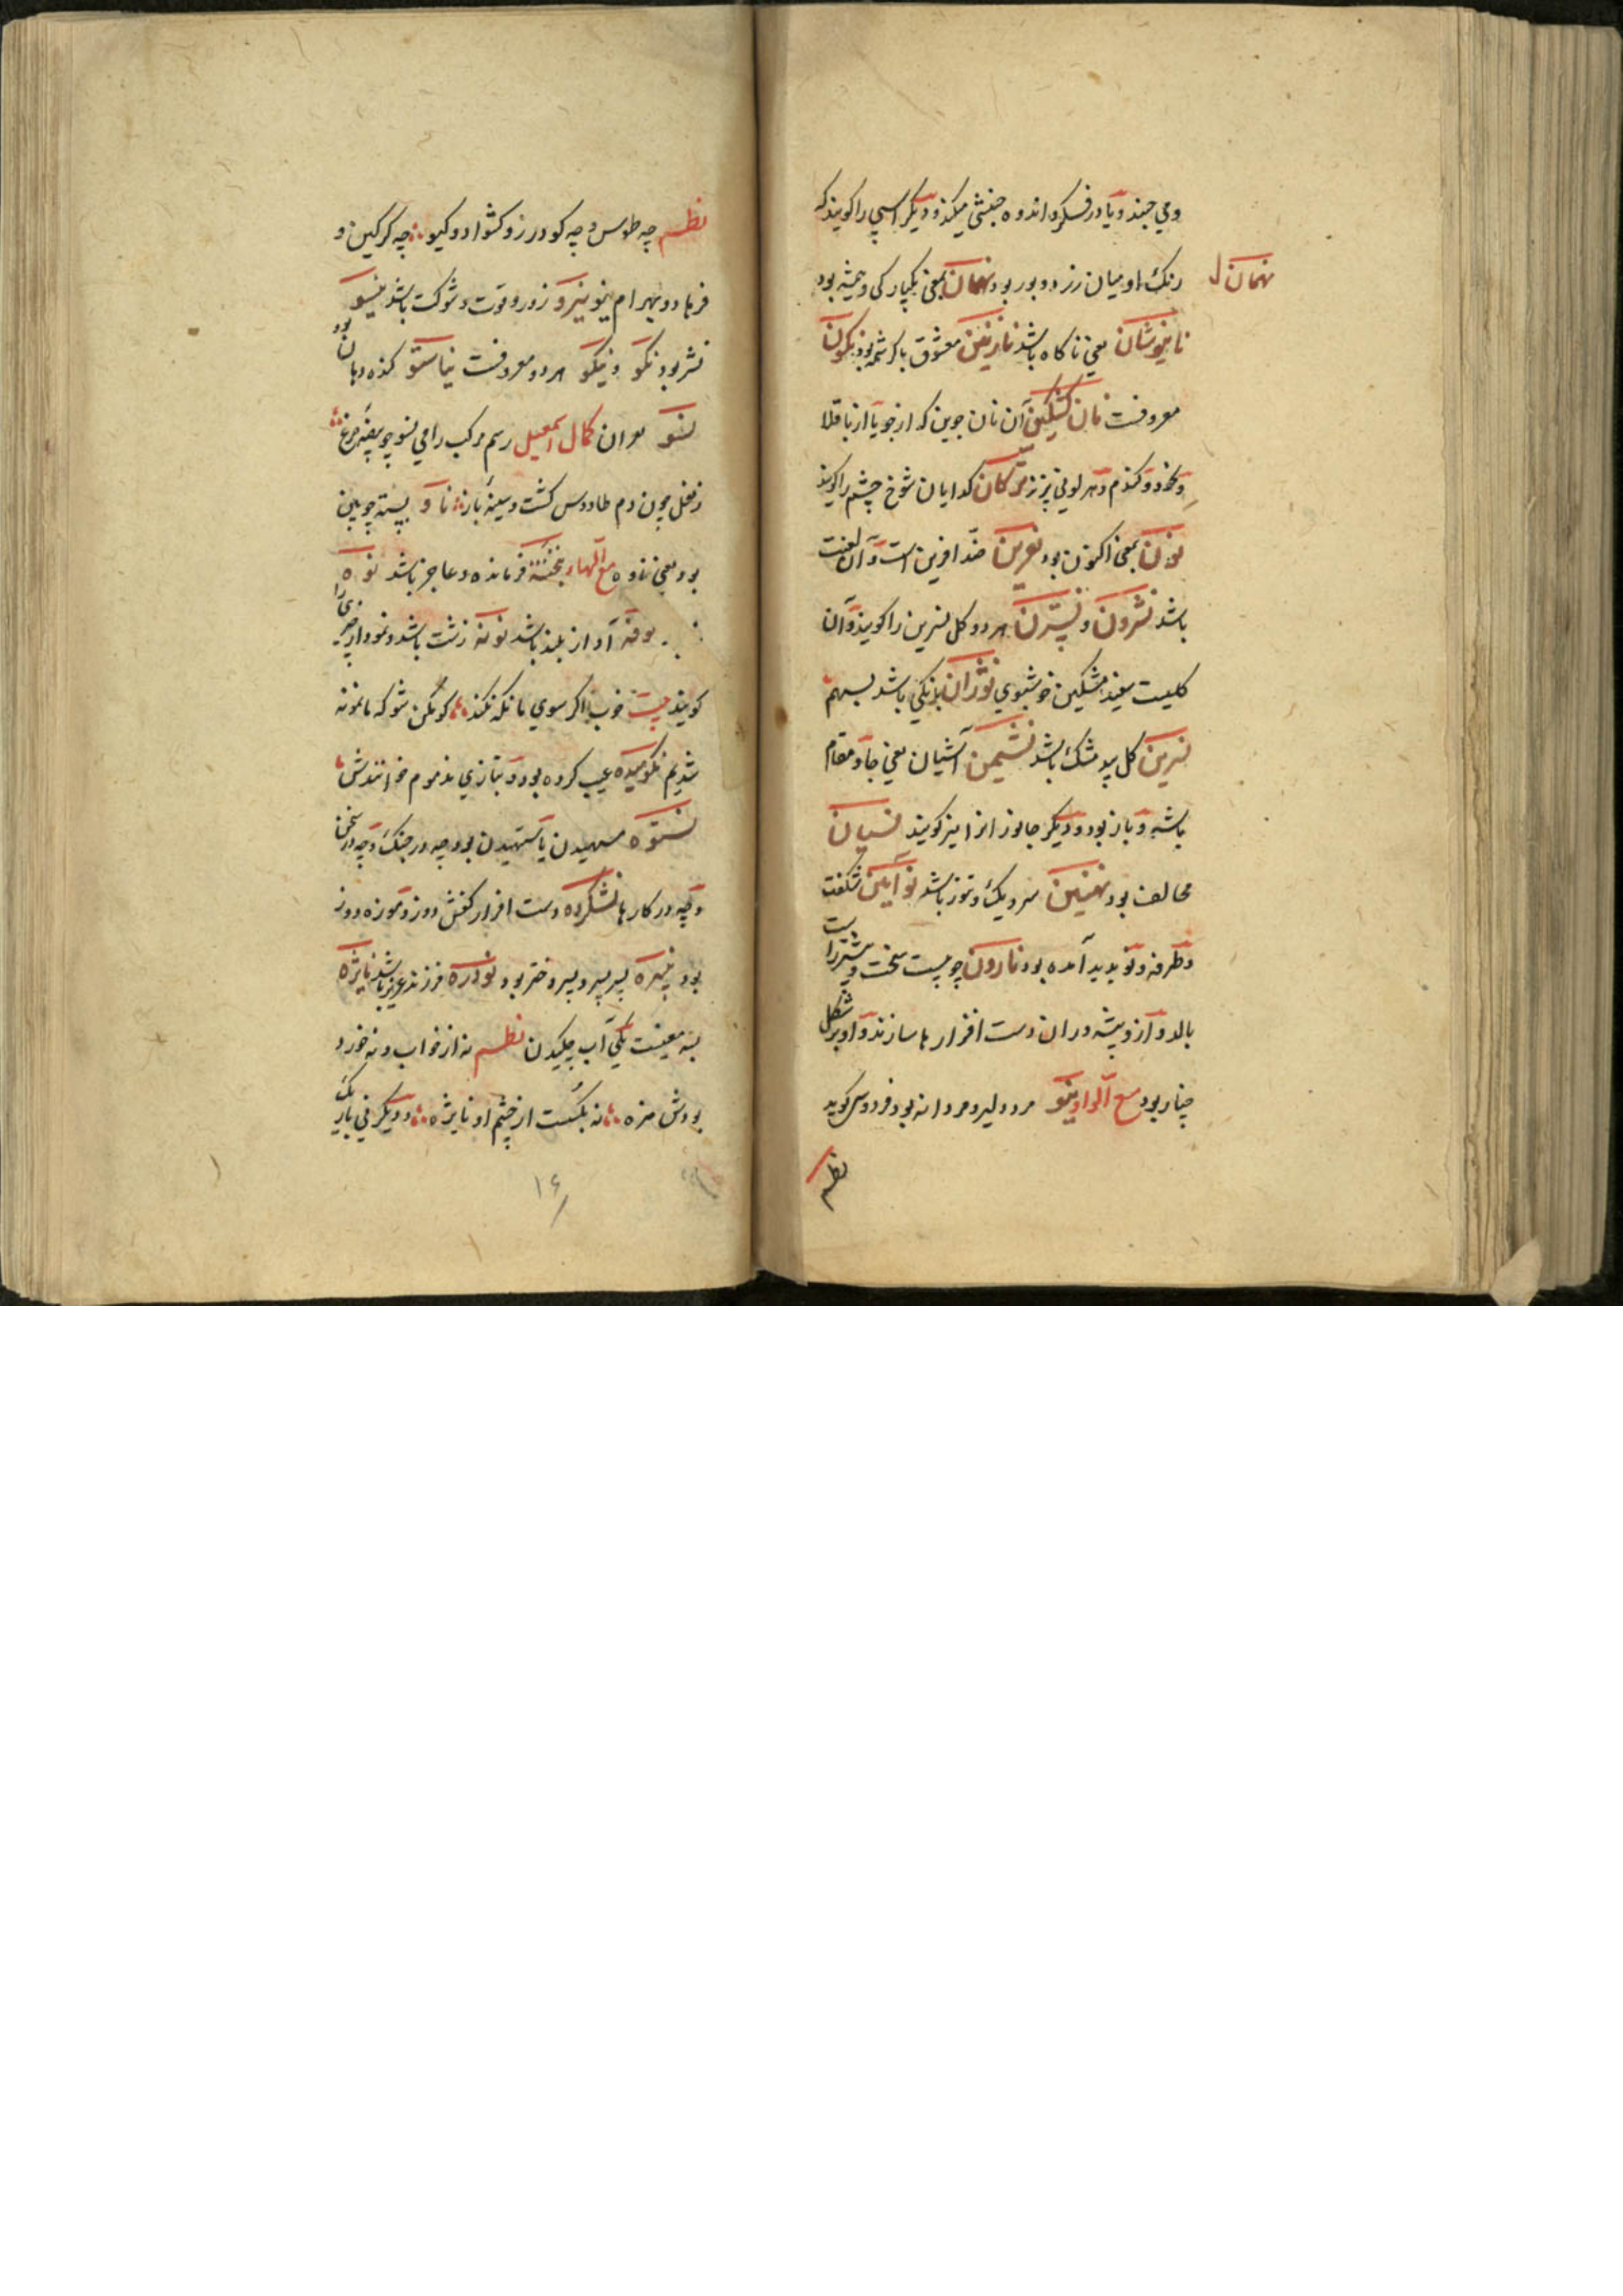 ومی جنبد ویا در فسکره اندوه جنبشی میکند و دیگر اسپی را کویند که
رنک او میان زرد و بور بود نهمان بمعنی یکبارکی و همیشه بود
نهمان
نانیوشان یعنی ناکاه باشد نازنین معشوق باکرشمه بود نکون
معروفست نان کشکین آن نان جوین که از جو یا از باقلا
ونخود و کندم و هر لونی پزند نرکان کدایان شوخ چشم را کویند
نون بمعنی اکنون بود نفرین ضد افرین است و آن لعنت
باشد نسترون و نسترن هر دو کل نسرین را کویند و آن
کلیست سفید مشکین خوشبوی نوژان بانکی باشد بسهم
نسرین کل بید مشک باشد نشیمن آشیان یعنی جا و مقام
باشه و باز بود و دیگر جانور انرا نیز کویند نسیان
مخالف بود نهنبن سر دیک و تنور باشد نو آیین شکفت
وطرفه و نو بدید آمده بود نارون چوبیست سخت و بیشتر راست
بالد و از و پیشه وران دست افزار ها سازند و او بر شکل
چنار بود مع الواو نیو مرد دلیر و مردانه بود فردوسی کوید
نظم
نظم چه طوس و چه کودرز و کشواد و کیو چه کرکین و
فرهاد و بهرام نیو نیرو زور و قوت و شوکت باشد نیسو
نشتر بود نکو و نیکو هر دو معروفست نیاستو کنده دهان بود
نسو کمال اسمعیل رسم مرکب را می نسو چو بیضه مرغ
ز نعل چون دم طاووس کشت و سینه باز ناو بسته چوبین
بود یعنی ناوه مع الهاء نخسته فرمانده و عاجز باشد نوه
نوفه آواز بلند باشد نونه زشت باشد و نمودار چیزی را
کویند خوب اکر سوی ما نکه نکند کو مکن شو که ما نمونه
شدیم نکوهیده عیب کرده بود و بتازی مذموم خوانندش
نستوه سهیدن یا ستهیدن بود چه در جنک و چه در سخن
و چه در کارها نشکرده دست افزار کفش دوز و موزه دوز
بود نبیره پسر پسر و پسر دختر بود نودره فرزند عزیز باشد نایژه
بسه معنیست یکی آب چکیدن نظم نه از خواب و نه خورد
بودش مزه نه بکسست از چشم او نایژه و دیگر نی باریک
۱۶